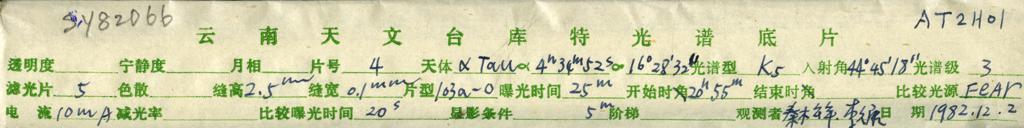 SY82066 AT2H01
云南天文台库特光谱底片
透明度 宁静度 月相 片号 4 天体 α Tau α 4ʰ34ᵐ52ˢ δ 16°28′32″ 光谱型 K5 入射角 44°45′18″ 光谱级 3
滤光片 5 色散 缝高 2.5ᵐᵐ 缝宽 0.1ᵐᵐ 片型 103a-O 曝光时间 25ᵐ 开始时角 20ʰ55ᵐ 结束时角 比较光源 FeAr
电流 10mA 减光率 比较曝光时间 20ˢ 显影条件 5ᵐ 阶梯 观测者 日期 1982.12.2